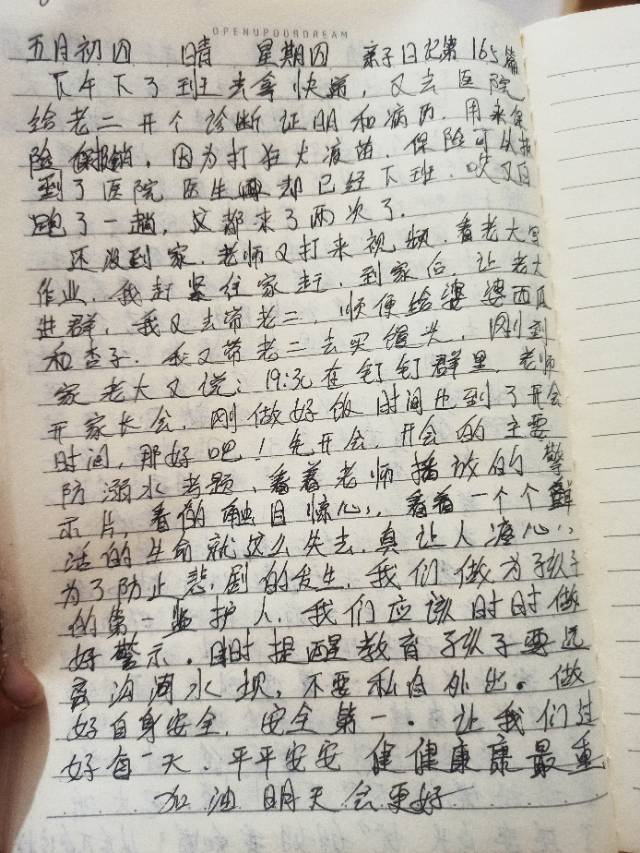 OPENUPOURDREAM
五月初四 晴 星期四 亲子日记第165篇
下午下了班先拿快递，又去医院
给老二开个诊断证明和病历.用来保
险保报销，因为打狂犬液苗.保险可以报
到了医院医生却已经下班.哎又白
跑了一趟，这都来了两次了.
还没到家.老师又打来视频.看老大写
作业.我赶紧往家赶，到家后.让老大
进群，我又去带老二，顺便给婆婆西瓜
和杏子.我又带老二去买馒头，刚到
家老大又说：19:30在钉钉群里.老师
开家长会.刚做好饭时间也到了开会
时间，那好吧！先开会.开会的主要
防溺水考题.看着老师播放的警
示片，看的触目惊心，看着一个个鲜
活的生命就这么失去.真让人痛心，
为了防止悲剧的发生.我们做为孩子
的第一监护人.我们应该时时做
好警示。时时提醒教育孩子要远
离沟河水坝，不要私自外出。做
好自身安全.安全第一.让我们过
好每一天.平平安安健健康康最重
加油明天会更好